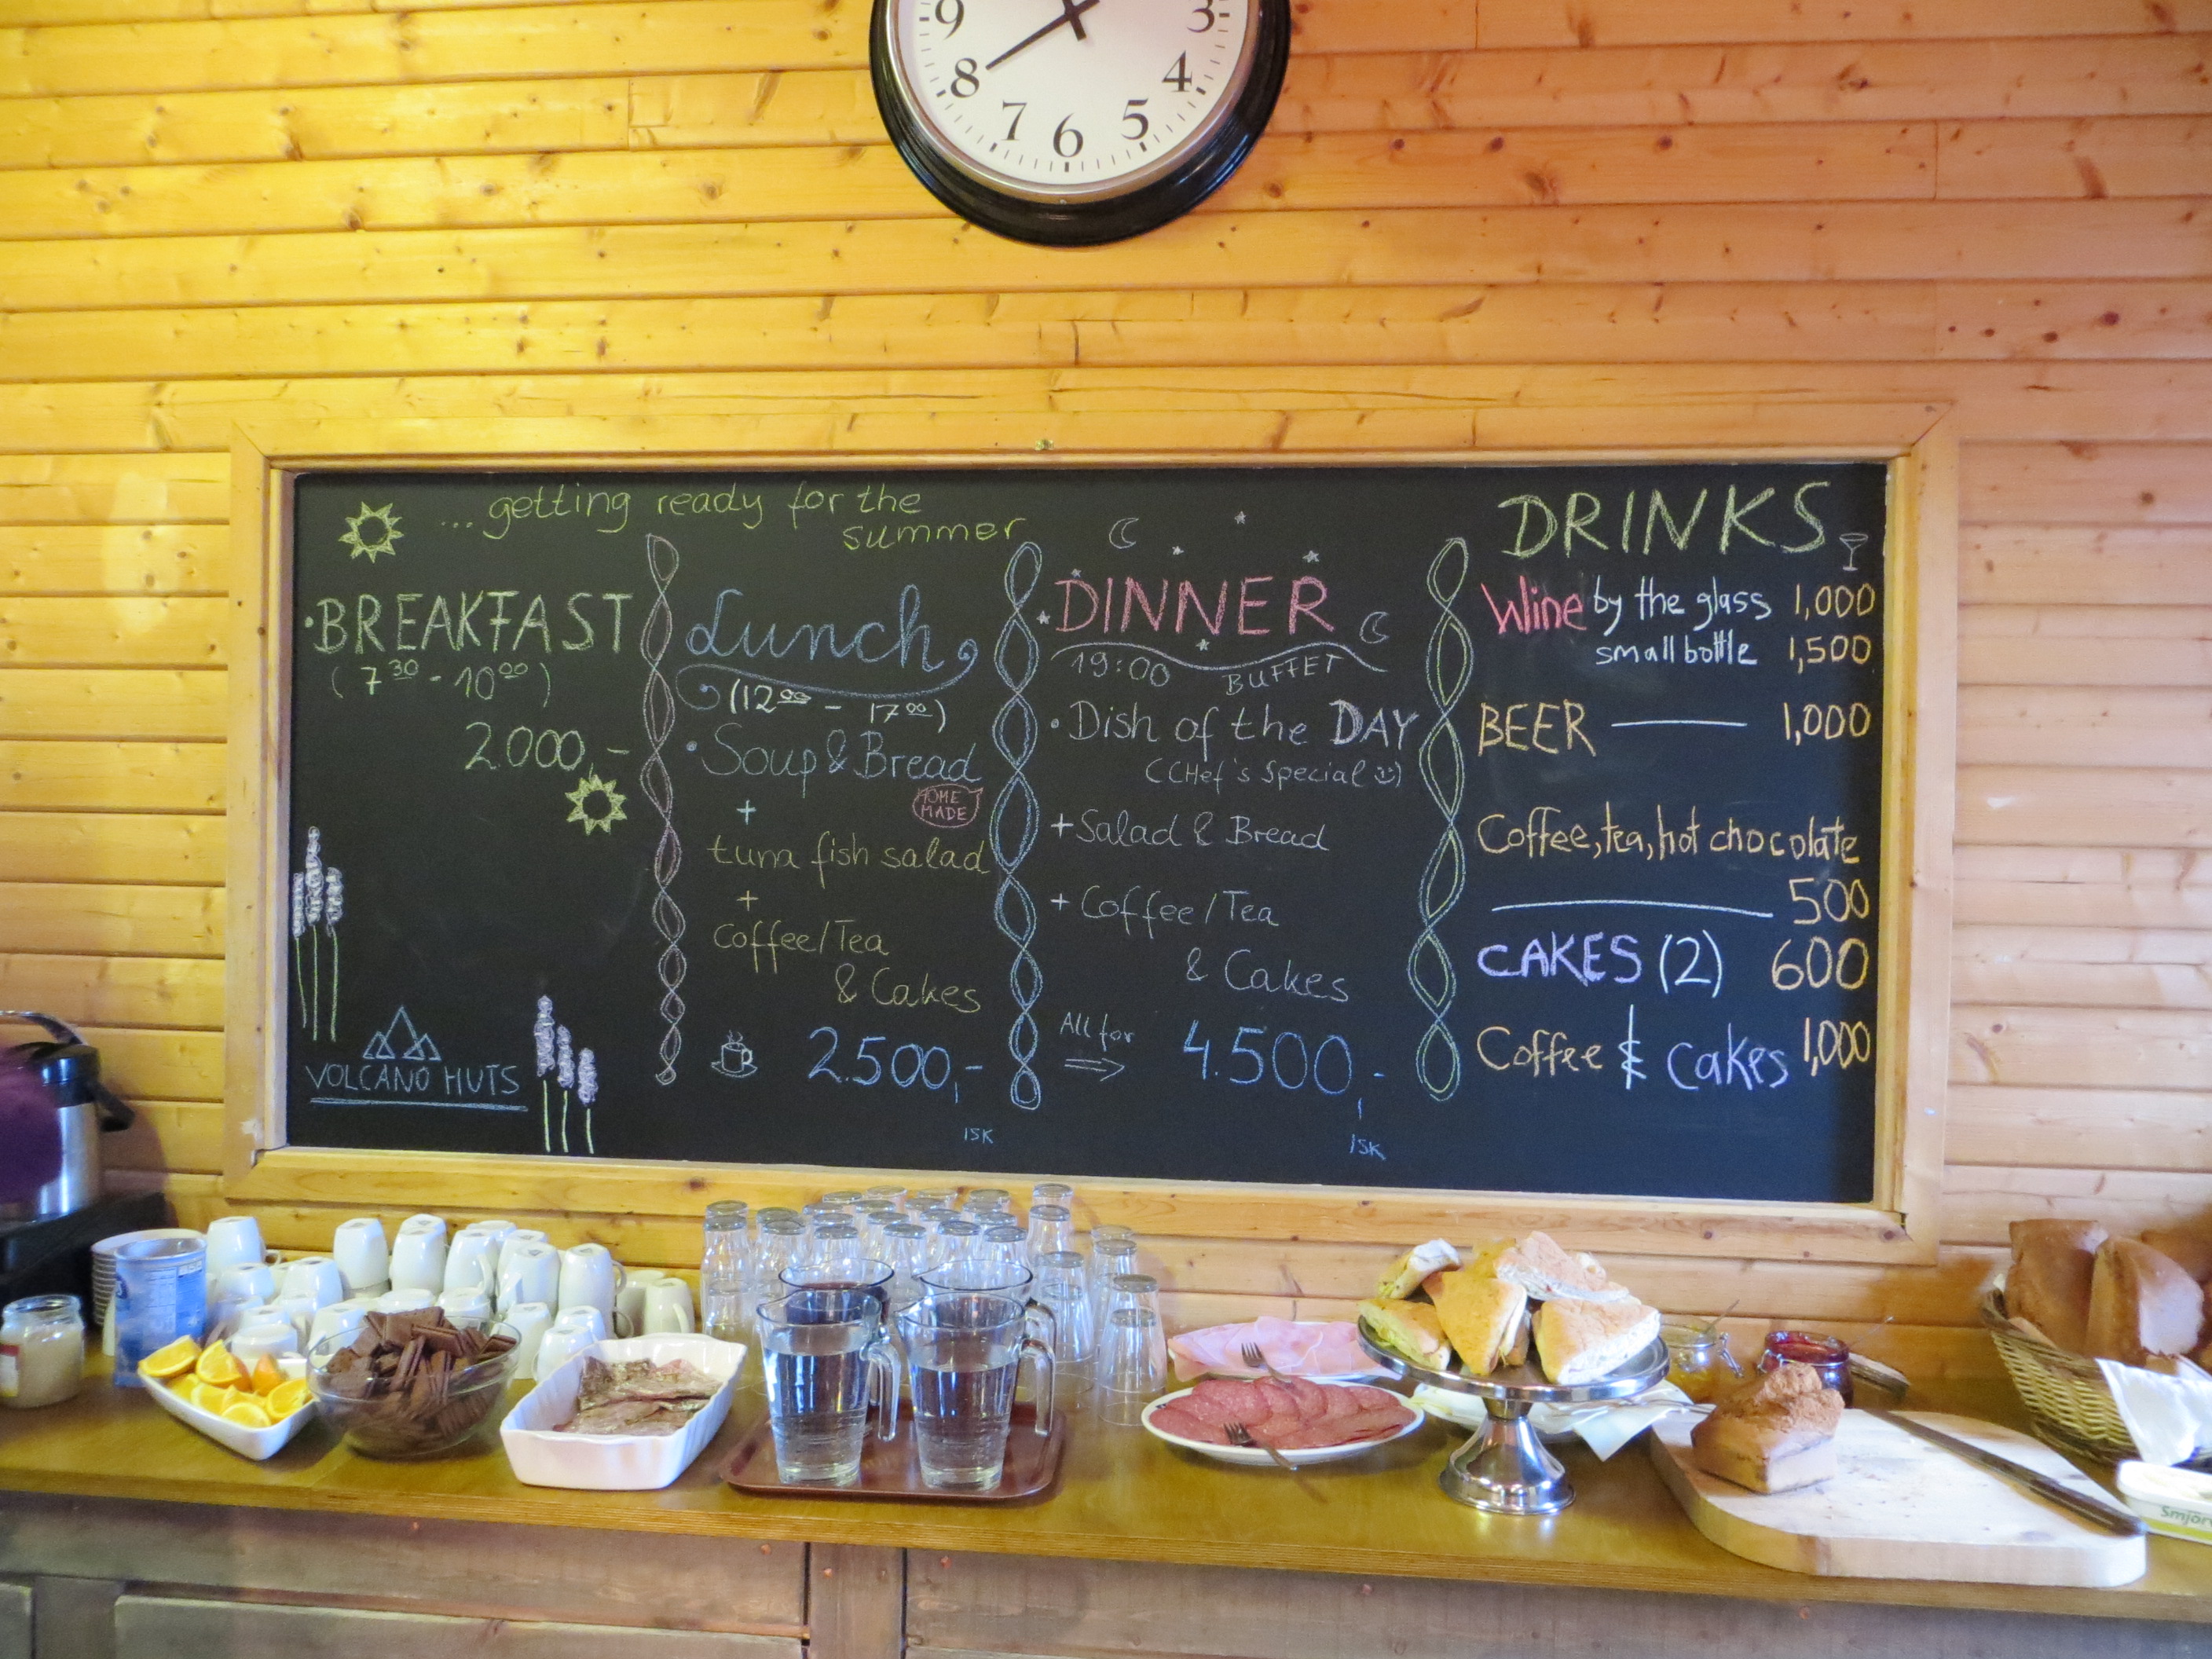 9
3
8
4
7
5
6
...getting ready for the
summer
•BREAKFAST
(7 30 - 10 00)
2.000,-
VOLCANO HUTS
Lunch
(12 00 - 17 00)
• Soup & Bread
HOME
MADE
+
tuna fish salad
+
Coffee/Tea
& Cakes
2.500,-
ISK
DINNER
19:00 BUFFET
• Dish of the DAY
(CHef's Special :))
+ Salad & Bread
+ Coffee/Tea
& Cakes
All for
⇒ 4.500,-
ISK
DRINKS
Wine by the glass 1,000
small bottle 1,500
BEER — 1,000
Coffee, tea, hot chocolate
— 500
CAKES (2) 600
Coffee & Cakes 1,000
Smjör